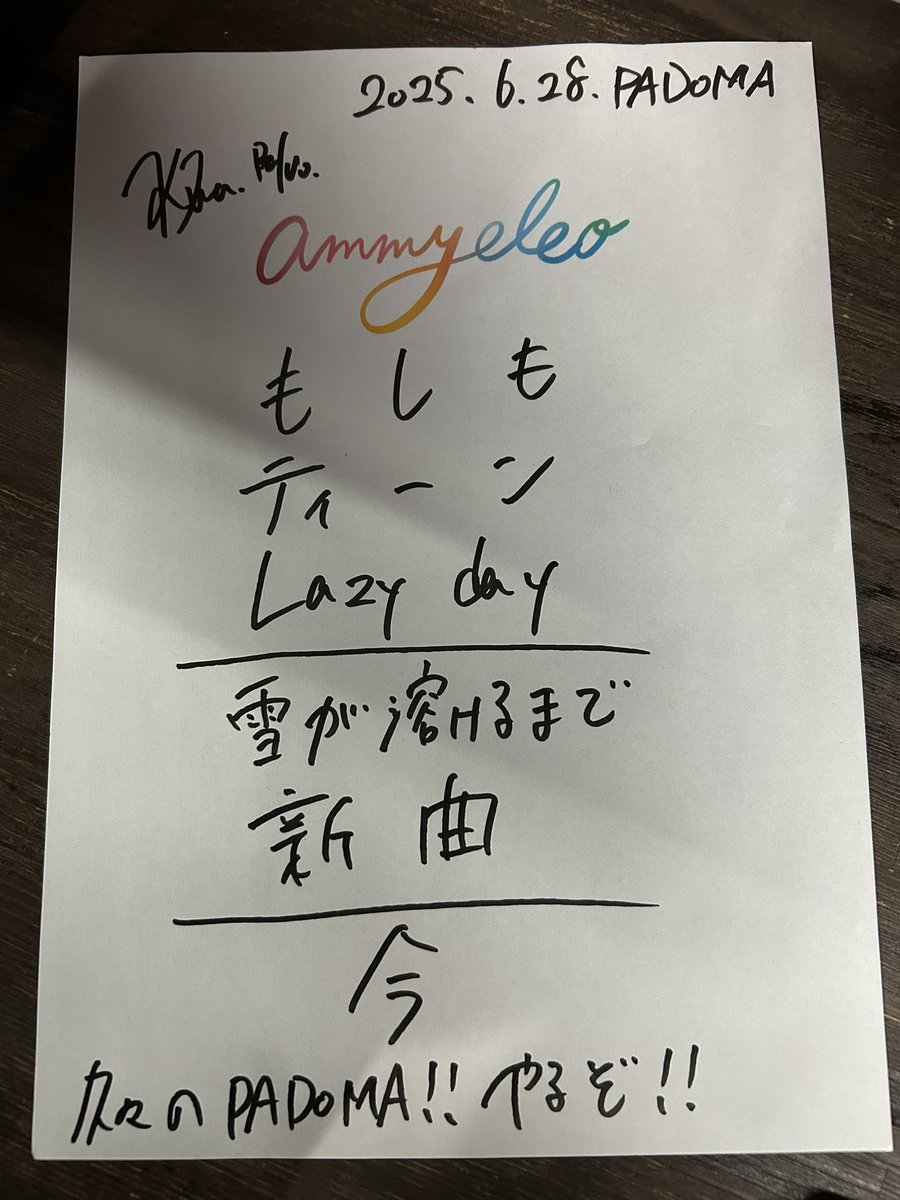 2025.6.28.PADOMA
ammyeleo
もしも
ティーン
Lazy day
雪が溶けるまで
新曲
今
久々のPADOMA!! やるぞ!!